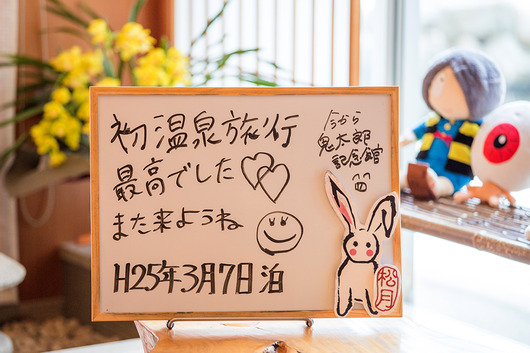 初温泉旅行
最高でした
また来ようね
H25年3月7日泊
今から
鬼太郎
記念館
松月